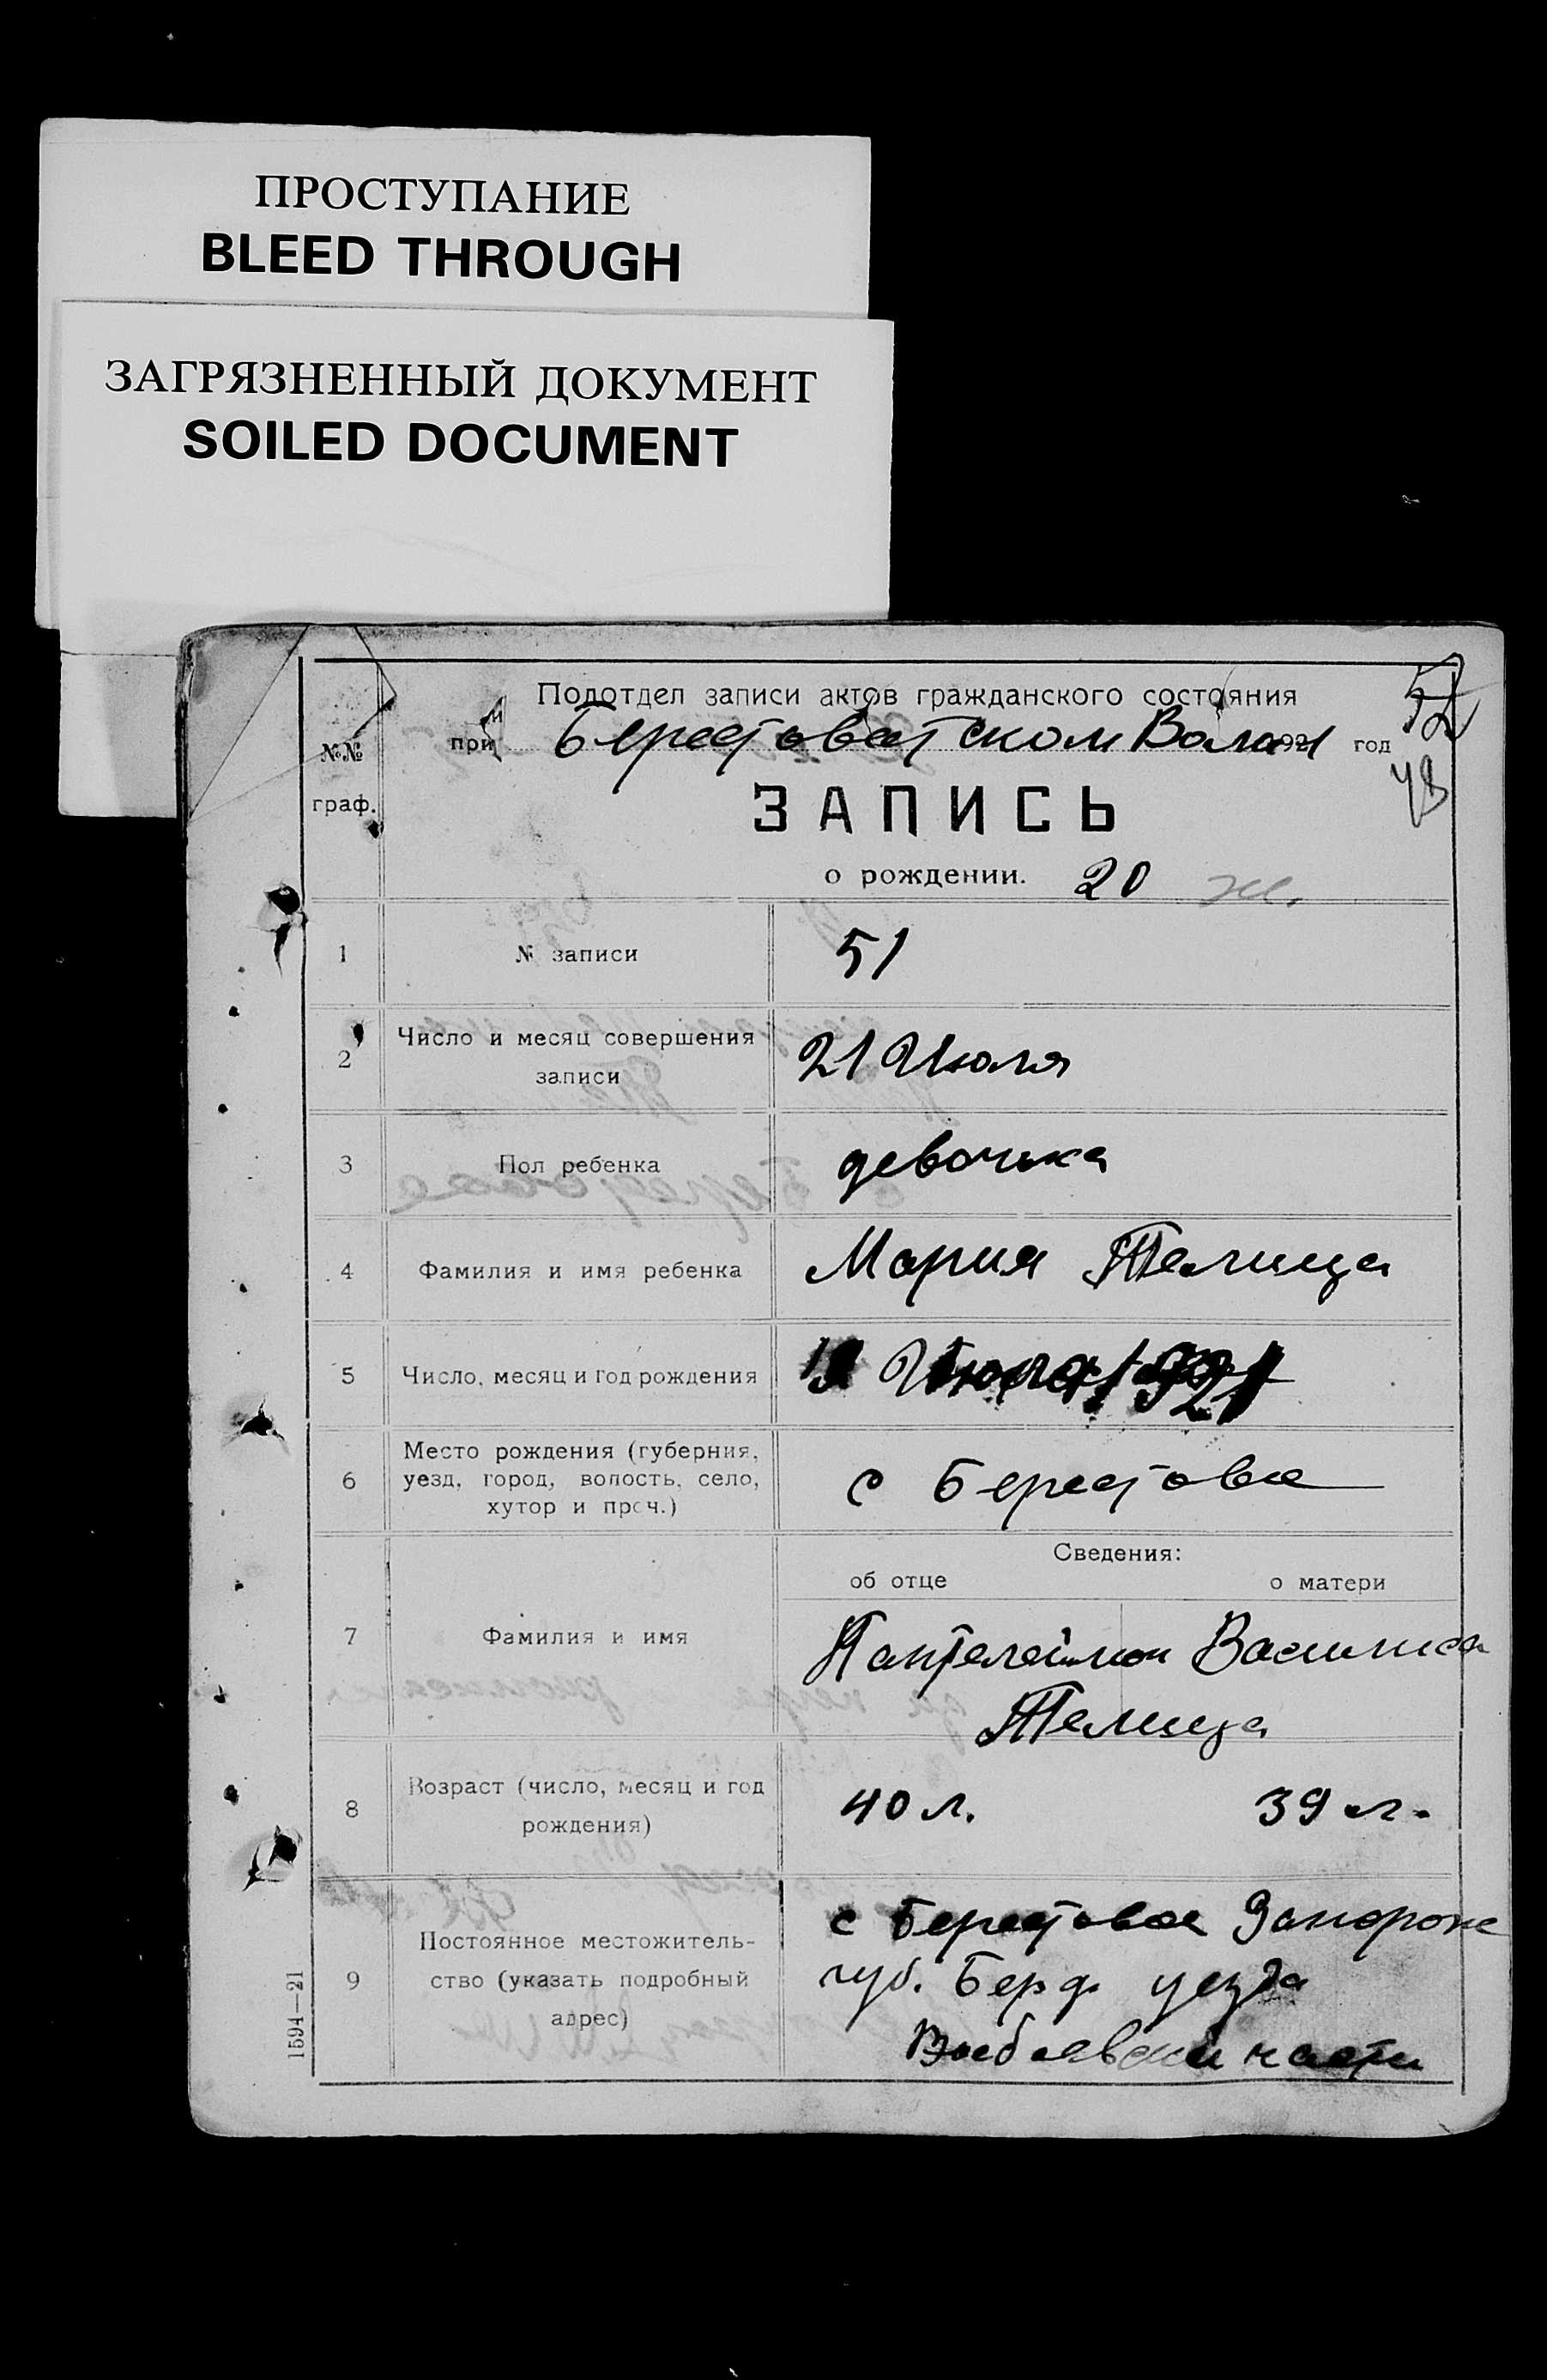 ПРОСТУПАНИЕ
BLEED THROUGH
ЗАГРЯЗНЕННЫЙ ДОКУМЕНТ
SOILED DOCUMENT
Подотдел записи актов гражданского состояния
52
при Берестоватском Волы 1921 год
№№
граф.
ЗАПИСЬ
о рождении. 20 ж.
1 № записи 51
2 Число и месяц совершения
записи
21 Июля
3 Пол ребенка девочька
4 Фамилия и имя ребенка Мария Телица
5 Число, месяц и год рождения Июля 1921
6 Место рождения (губерния,
уезд, город, волость, село,
хутор и проч.)
с Берестовое
Сведения:
об отце о матери
7 Фамилия и имя Пантелеймон Василиса
Телица
8 Возраст (число, месяц и год
рождения)
40 л. 39 л.
9 Постоянное местожитель-
ство (указать подробный
адрес)
с Берестовое Запорож
губ. Берд уезда
части
1594—21